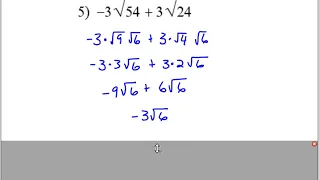 5) -3√54 + 3√24
-3·√9 √6 + 3·√4 √6
-3·3√6 + 3·2√6
-9√6 + 6√6
-3√6